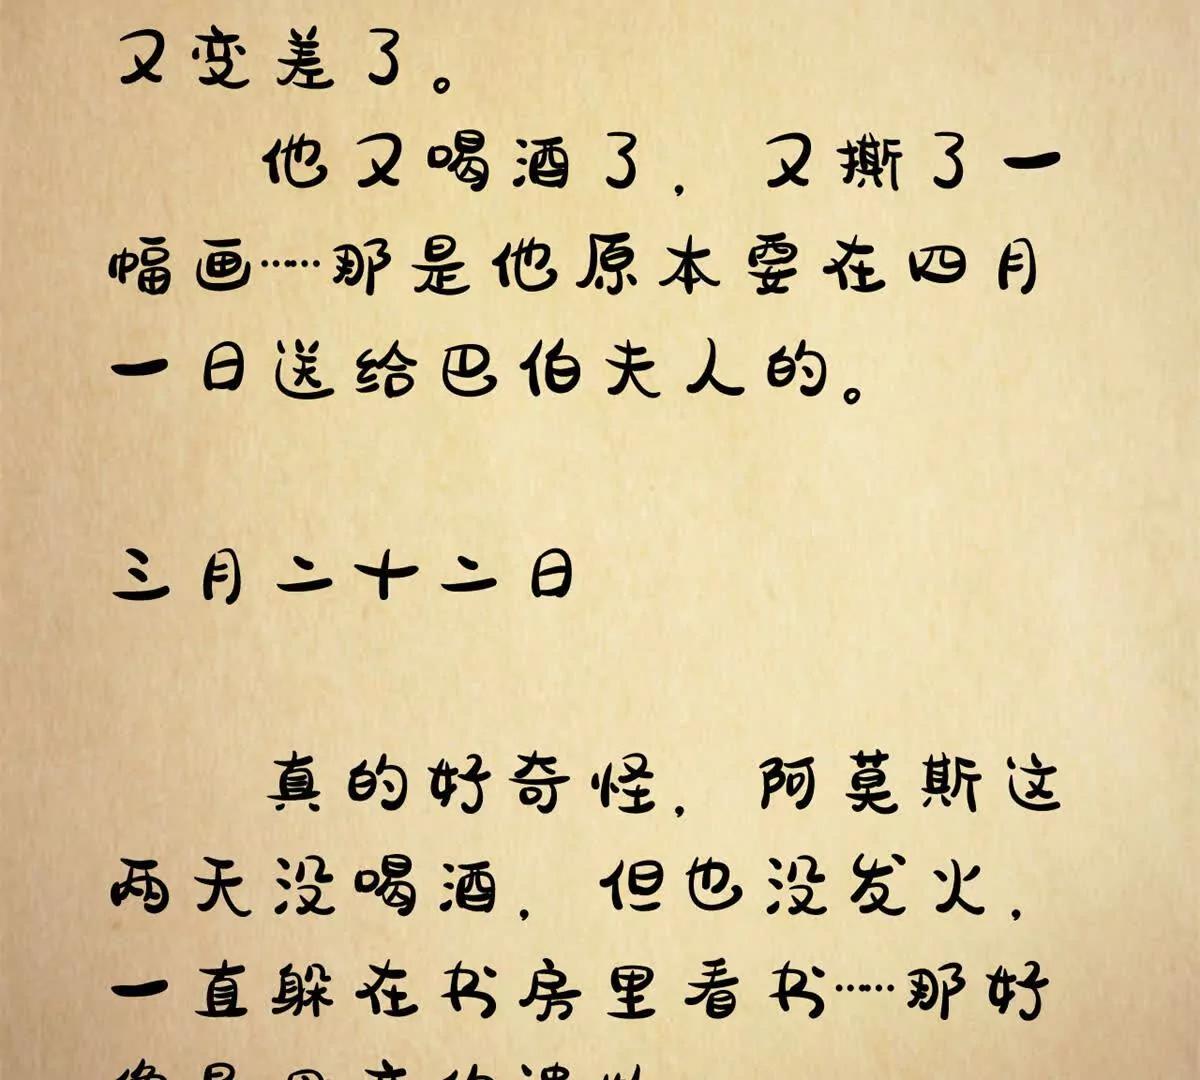 又变差了。
他又喝酒了，又撕了一
幅画……那是他原本要在四月
一日送给巴伯夫人的。
三月二十二日
真的好奇怪，阿莫斯这
两天没喝酒，但也没发火，
一直躲在书房里看书……那好